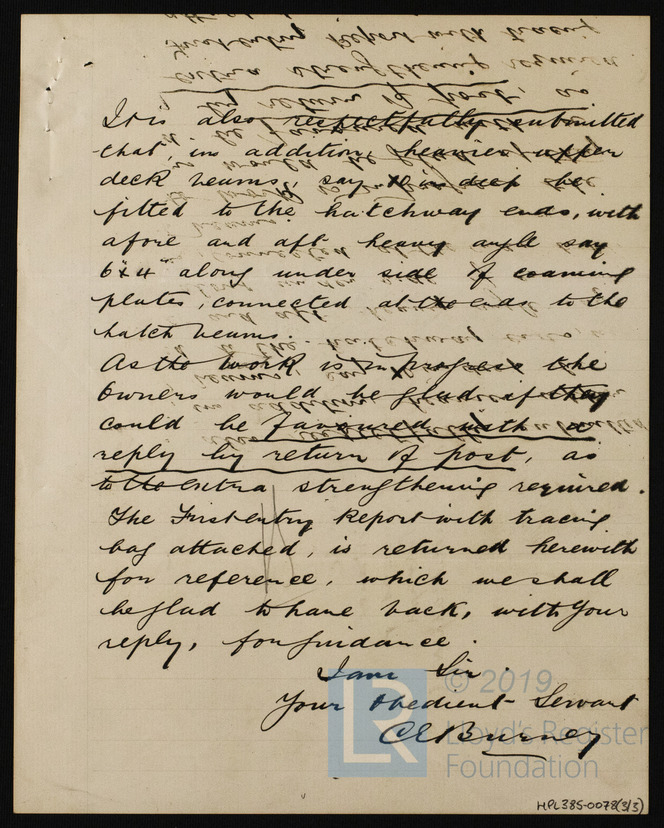 It is also respectfully submitted
that, in addition, heavier upper
deck beams, say in deep be
fitted to the hatchway ends, with
afore and aft heavy angle say
6x4 along under side of coaming
plates, connected at the ends to the
hatch beams.
As the work is in progress the
Owners would be glad if they
could be favoured with a
reply by return of post, as
to the extra strengthening required.
The First Entry Report with tracing
bag attached, is returned herewith
for reference, which we shall
be glad to have back, with Your
reply, for guidance.
I am Sir.
Your Obedient Servant
© 2019
Lloyd's Register
Foundation
LR
HPL385-0078(3/3)